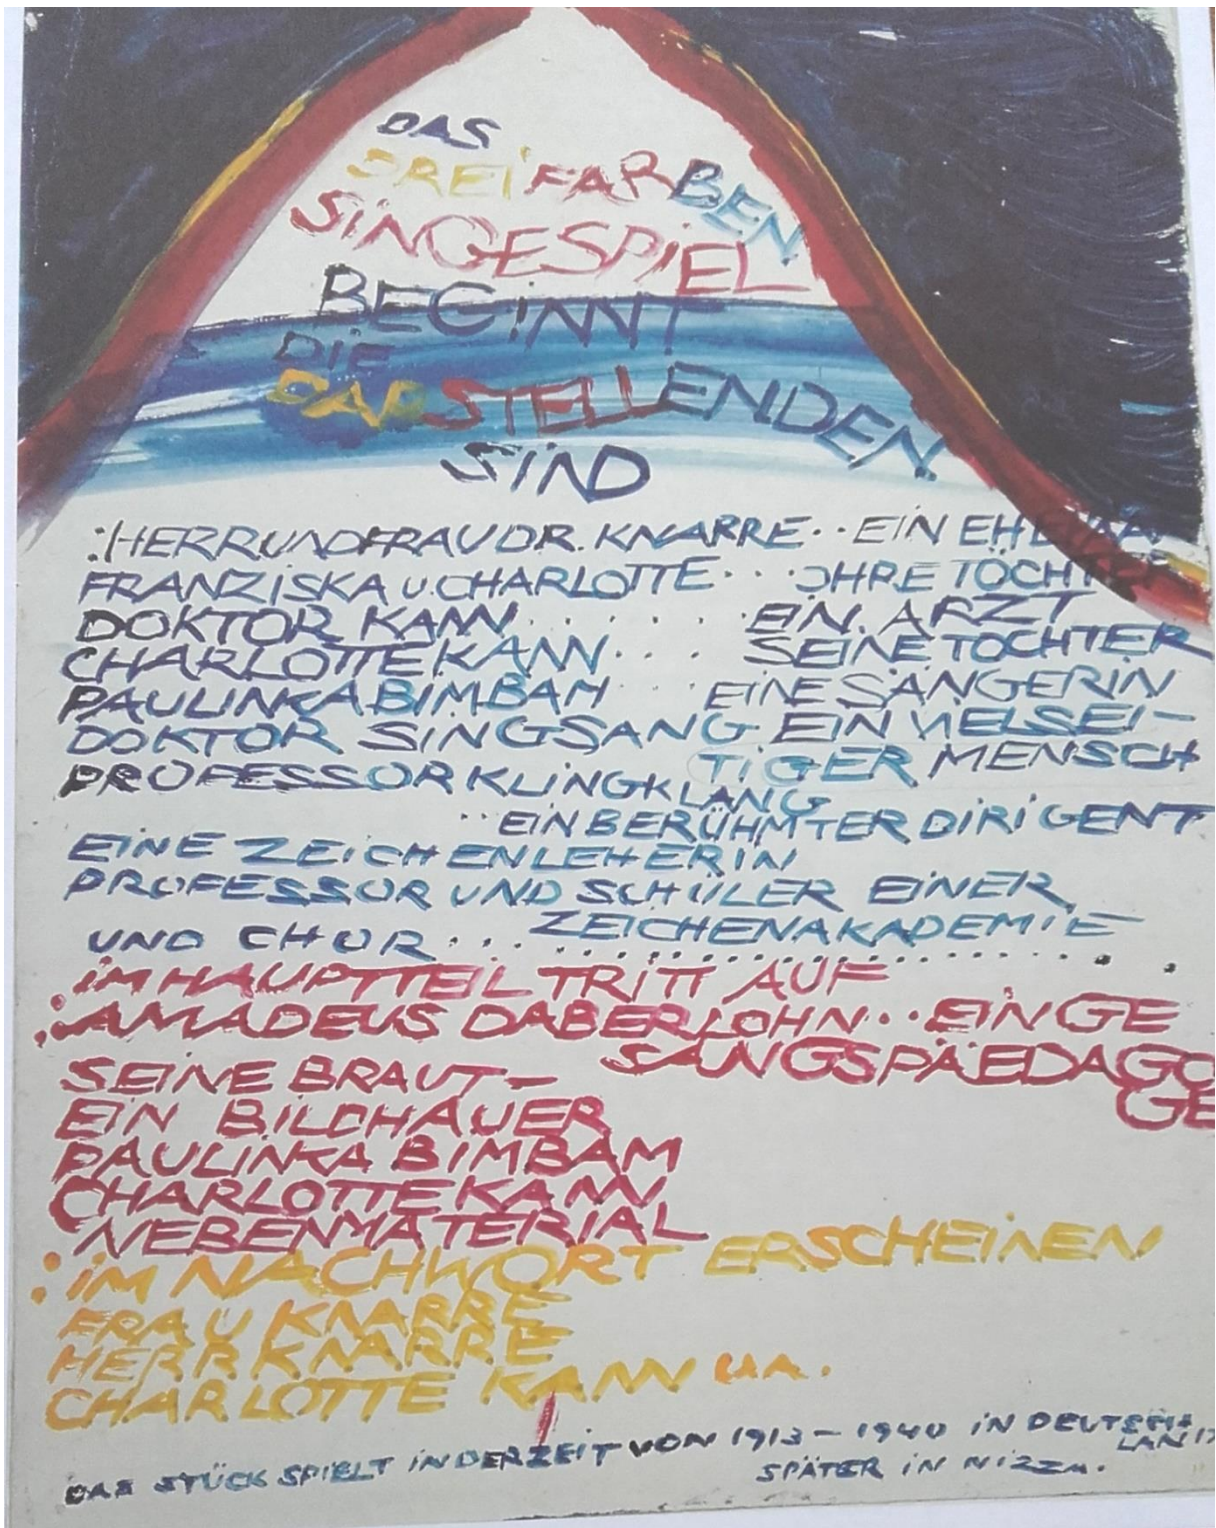 DAS
DREIFARBEN
SINGESPIEL
BEGINNT
DIE
DARSTELLENDEN
SIND
:HERR UND FRAU DR. KNARRE.. EIN
FRANZISKA U. CHARLOTTE... IHRE
DOKTOR KANN....... EIN ARZT
CHARLOTTE KANN.... SEINE TOCHTER
PAULINKA BIMBAM... EINE SÄNGERIN
DOKTOR SINGSANG EIN VIELSEI-
TIGER MENSCH
PROFESSOR KLINGKLANG
..EIN BERÜHMTER DIRIGENT
EINE ZEICHENLEHERIN
PROFESSOR UND SCHÜLER EINER
ZEICHENAKADEMIE
UND CHOR....................
:IM HAUPTTEIL TRITT AUF
:AMADEUS DABERLOHN.. EIN GE
SANGSPÄEDAGO
GE
SEINE BRAUT-
EIN BILDHAUER
PAULINKA BIMBAM
CHARLOTTE KANN
NEBENMATERIAL
:IM NACHWORT ERSCHEINEN
FRAU KNARRE
HERR KNARRE
CHARLOTTE KANN U.A.
DAS STÜCK SPIELT IN DER ZEIT VON 1913-1940 IN DEUTSCH
LAND
SPÄTER IN NIZZA.